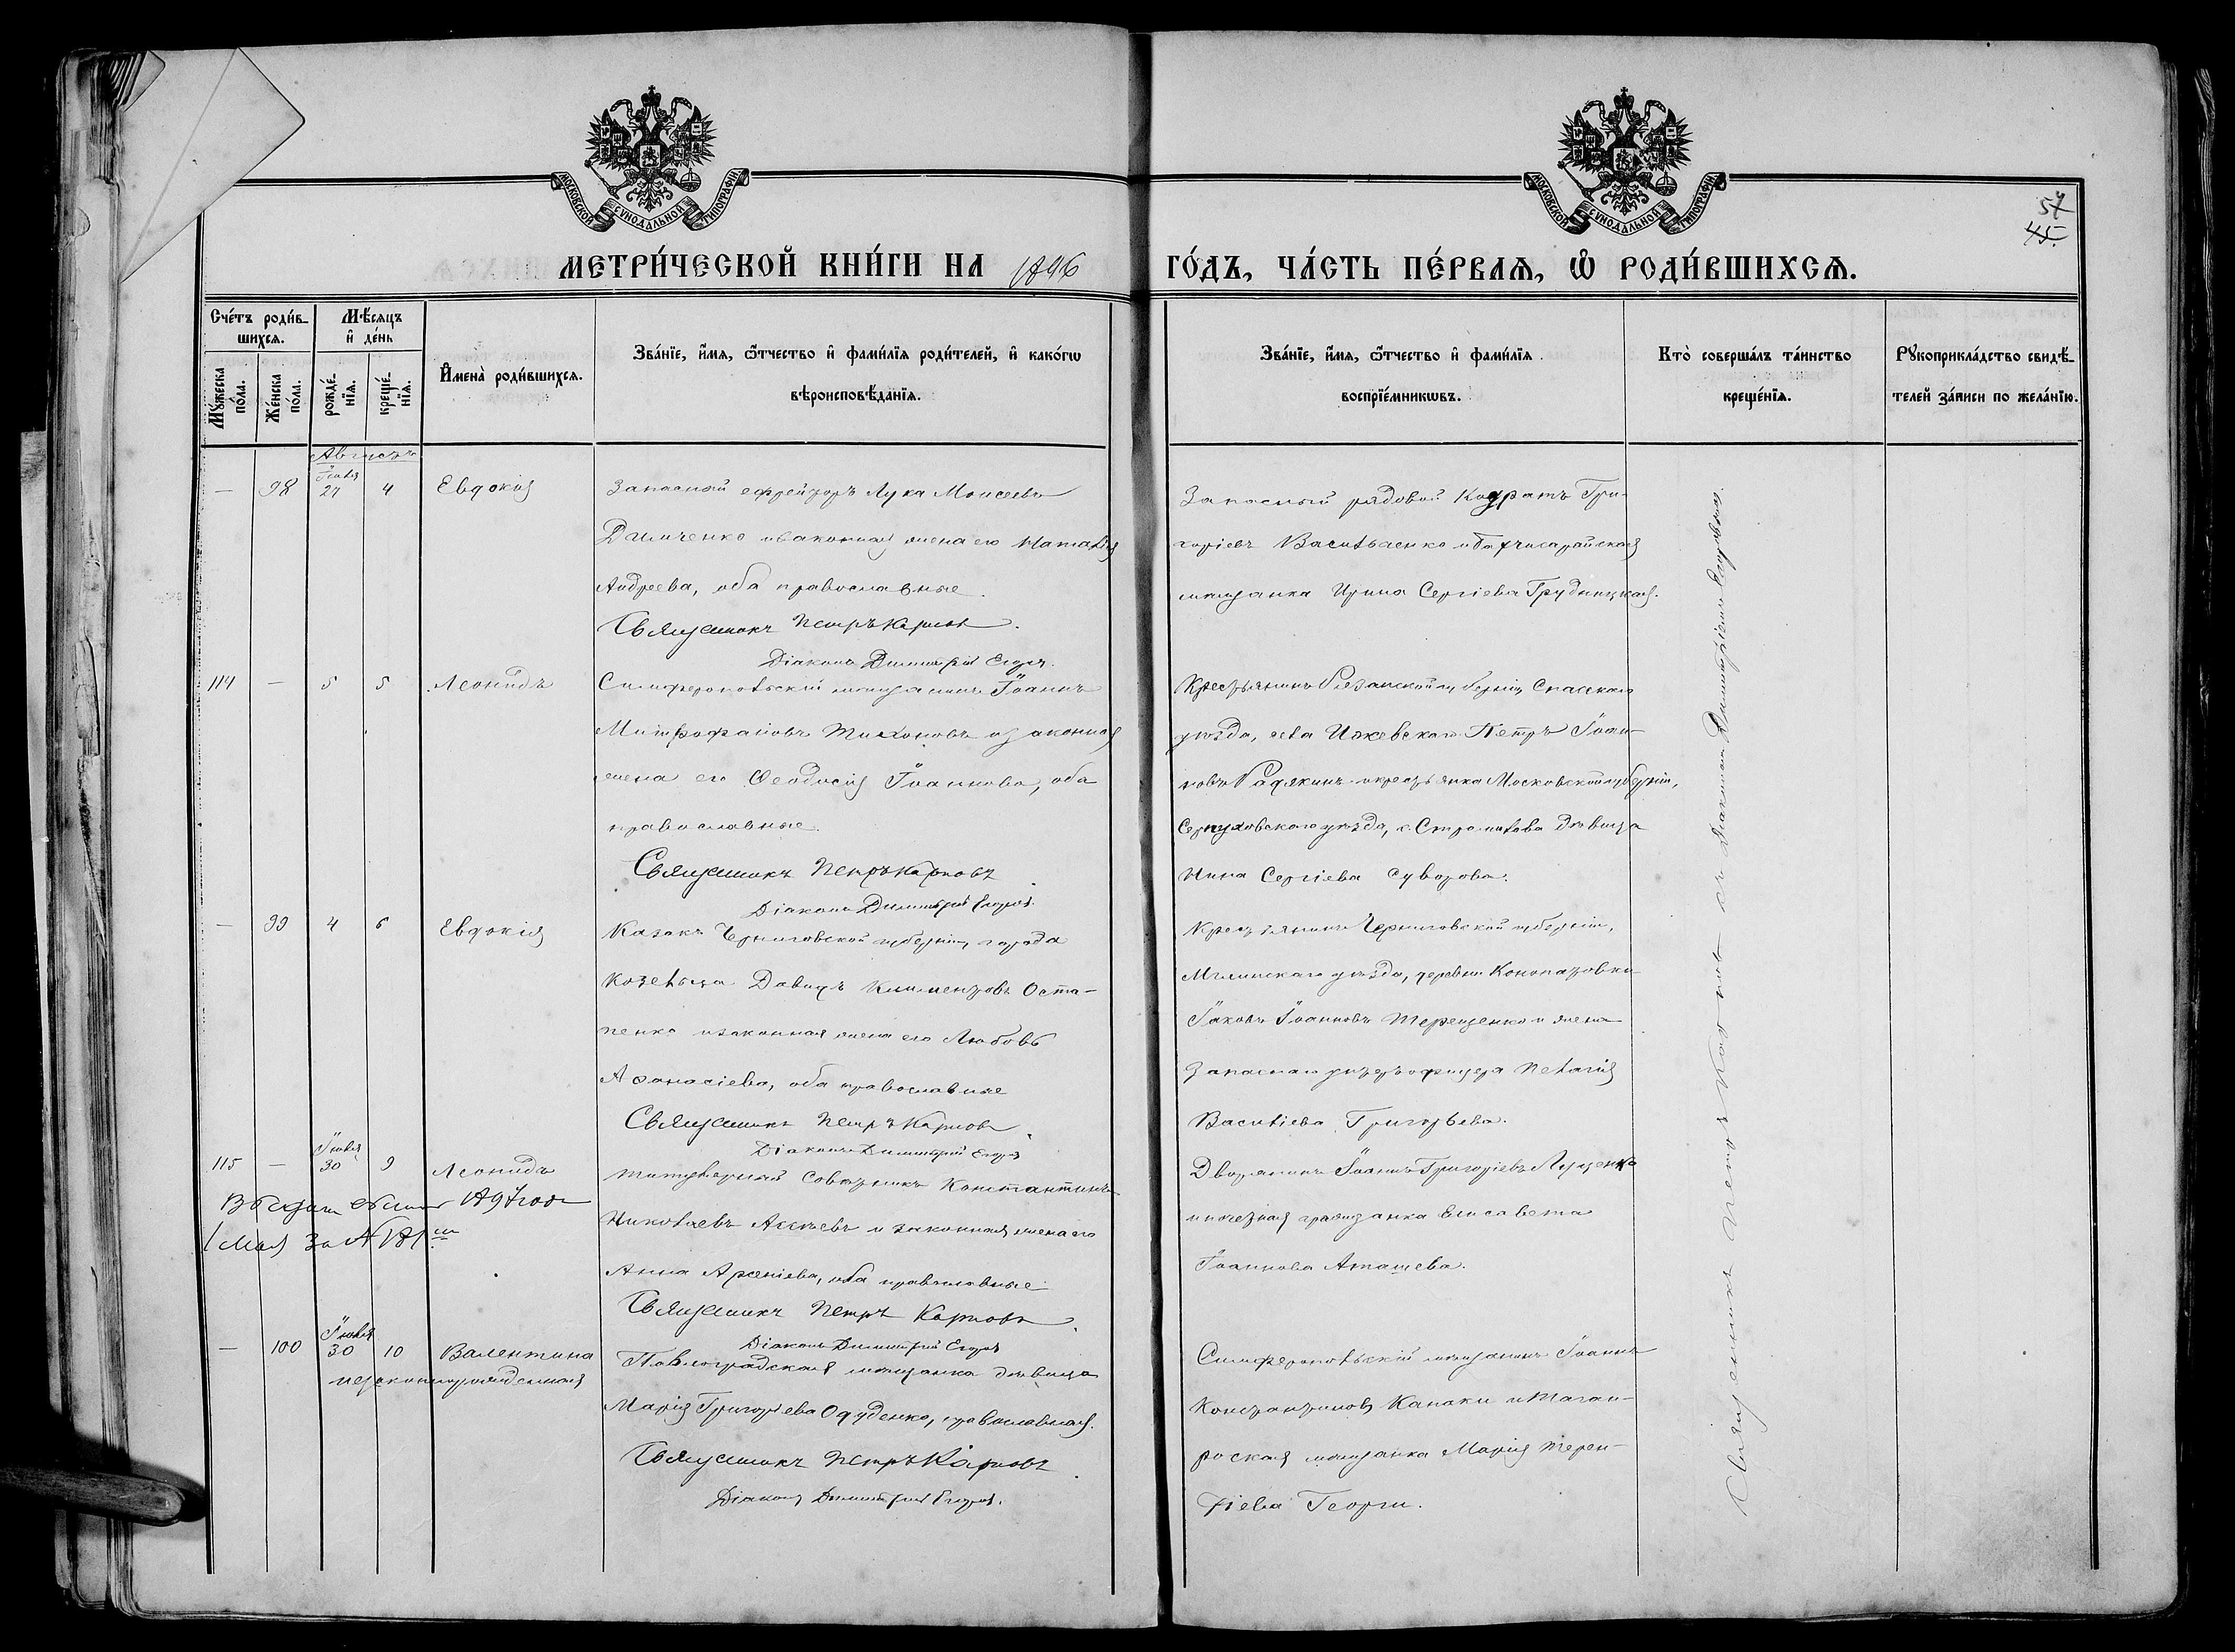 МОСКОВСКОЙ СѴНОДАЛЬНОЙ ТИПОГРАФІИ
МОСКОВСКОЙ СѴНОДАЛЬНОЙ ТИПОГРАФІИ
57
45.
МЕТРИ́ЧЕСКОЙ КНИ́ГИ НА 1896 ГО́ДЪ, ЧА́СТЬ ПЕ́РВАѦ, Ѽ РОДИ́ВШИХСѦ.
Сче́тъ роди́в-
шихсѧ.
Мꙋ́жеска по́ла.
Же́нска по́ла.
Мѣ́сѧцъ
и҆ де́нь
рожде́-нїѧ.
креще́-нїѧ.
И҆мена̀ роди́вшихсѧ.
Зва́нїе, и҆́мѧ, ѻ҆́тчество и҆ фами́лїѧ роди́телей, и҆ како́гѡ
вѣроисповѣ́данїѧ.
Зва́нїе, и҆́мѧ, ѻ҆́тчество и҆ фами́лїѧ
воспрїе́мникѡвъ.
Кто̀ соверша́лъ та́инство
креще́нїѧ.
Рꙋкоприкла́дство свидѣ́-
телей за́писи по жела́нїю.
Августъ
— 98 Іюля 27 4 Евдокія
Запасный ефрейторъ Лука Моисеевъ
Димченко и законная жена его Наталія
Андреева, оба православные.
Священникъ Петръ Карповъ.
Діаконъ Димитрій Егоровъ.
Запасный рядовой Кодратъ Гри-
горіевъ Васильченко и бахчисарайская
мѣщанка Ирина Сергіева Грудницкая.
114 — 5 5 Леонидъ
Симферопольскій мѣщанинъ Іоаннъ
Митрофановъ Тихоновъ и законная
жена его Ѳеодосія Іоаннова, оба
православные.
Священникъ Петръ Карповъ
Діаконъ Димитрій Егоровъ.
Крестьянинъ Рязанской губерніи, Спасскаго
уѣзда, села Ижевскаго Петръ Іоан-
новъ и крестьянка Московской губерніи,
Серпуховскаго уѣзда, с. дѣвица
Нина Сергіева Суворова.
— 99 4 6 Евдокія
Казакъ Черниговской губерніи, города
Козельца Давидъ Климентовъ Оста-
пенко и законная жена его Любовь
Аѳанасіева, оба православные
Священникъ Петръ Карповъ
Діаконъ Димитрій Егоровъ
Крестьянинъ Черниговской губерніи,
Мглинскаго уѣзда, деревни
Іаковъ Іоанновъ Терещенко и жена
запаснаго унтеръ офицера Пелагія
Василіева Григорьева.
115 — Іюля 30 9 Леонидъ
1897 года
1 мая за № 181
Титулярный Совѣтникъ Константинъ
Николаевъ и законная жена его
Анна Арсеніева, оба православные
Священникъ Петръ Карповъ
Діаконъ Димитрій Егоровъ
Дворянинъ Іоаннъ Григоріевъ Луценко
и почетная гражданка Елисавета
Іоаннова Аташева.
— 100 Іюля 30 10 Валентина
незаконнорожденная
Павлоградская мѣщанка дѣвица
Марія Григорьева Одуденко, православная.
Священникъ Петръ Карповъ
Діаконъ Димитрій Егоровъ.
Симферопольскій мѣщанинъ Іоаннъ
Константиновъ Канаки и Таган-
рогская мѣщанка Марія Терен-
тіева Георги.
Священникъ Петръ Карповъ съ діакономъ Димитріемъ Егоровымъ.